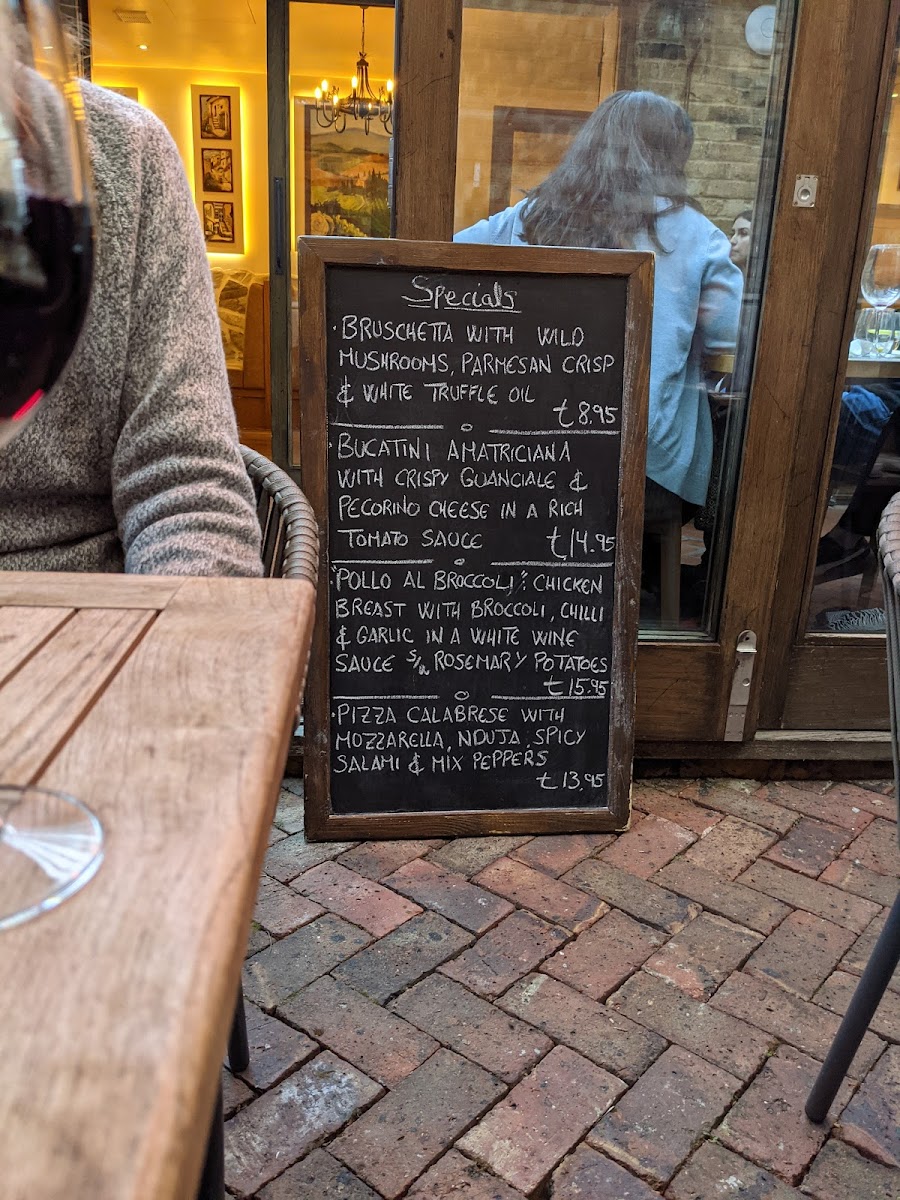 Specials
· BRUSCHETTA WITH WILD
MUSHROOMS, PARMESAN CRISP
& WHITE TRUFFLE OIL
£8.95
· BUCATINI AMATRICIANA
WITH CRISPY GUANCIALE &
PECORINO CHEESE IN A RICH
TOMATO SAUCE £14.95
· "POLLO AL BROCCOLI": CHICKEN
BREAST WITH BROCCOLI, CHILLI
& GARLIC IN A WHITE WINE
SAUCE S/W ROSEMARY POTATOES
£15.95
· PIZZA CALABRESE WITH
MOZZARELLA, NDUJA, SPICY
SALAMI & MIX PEPPERS
£13,95